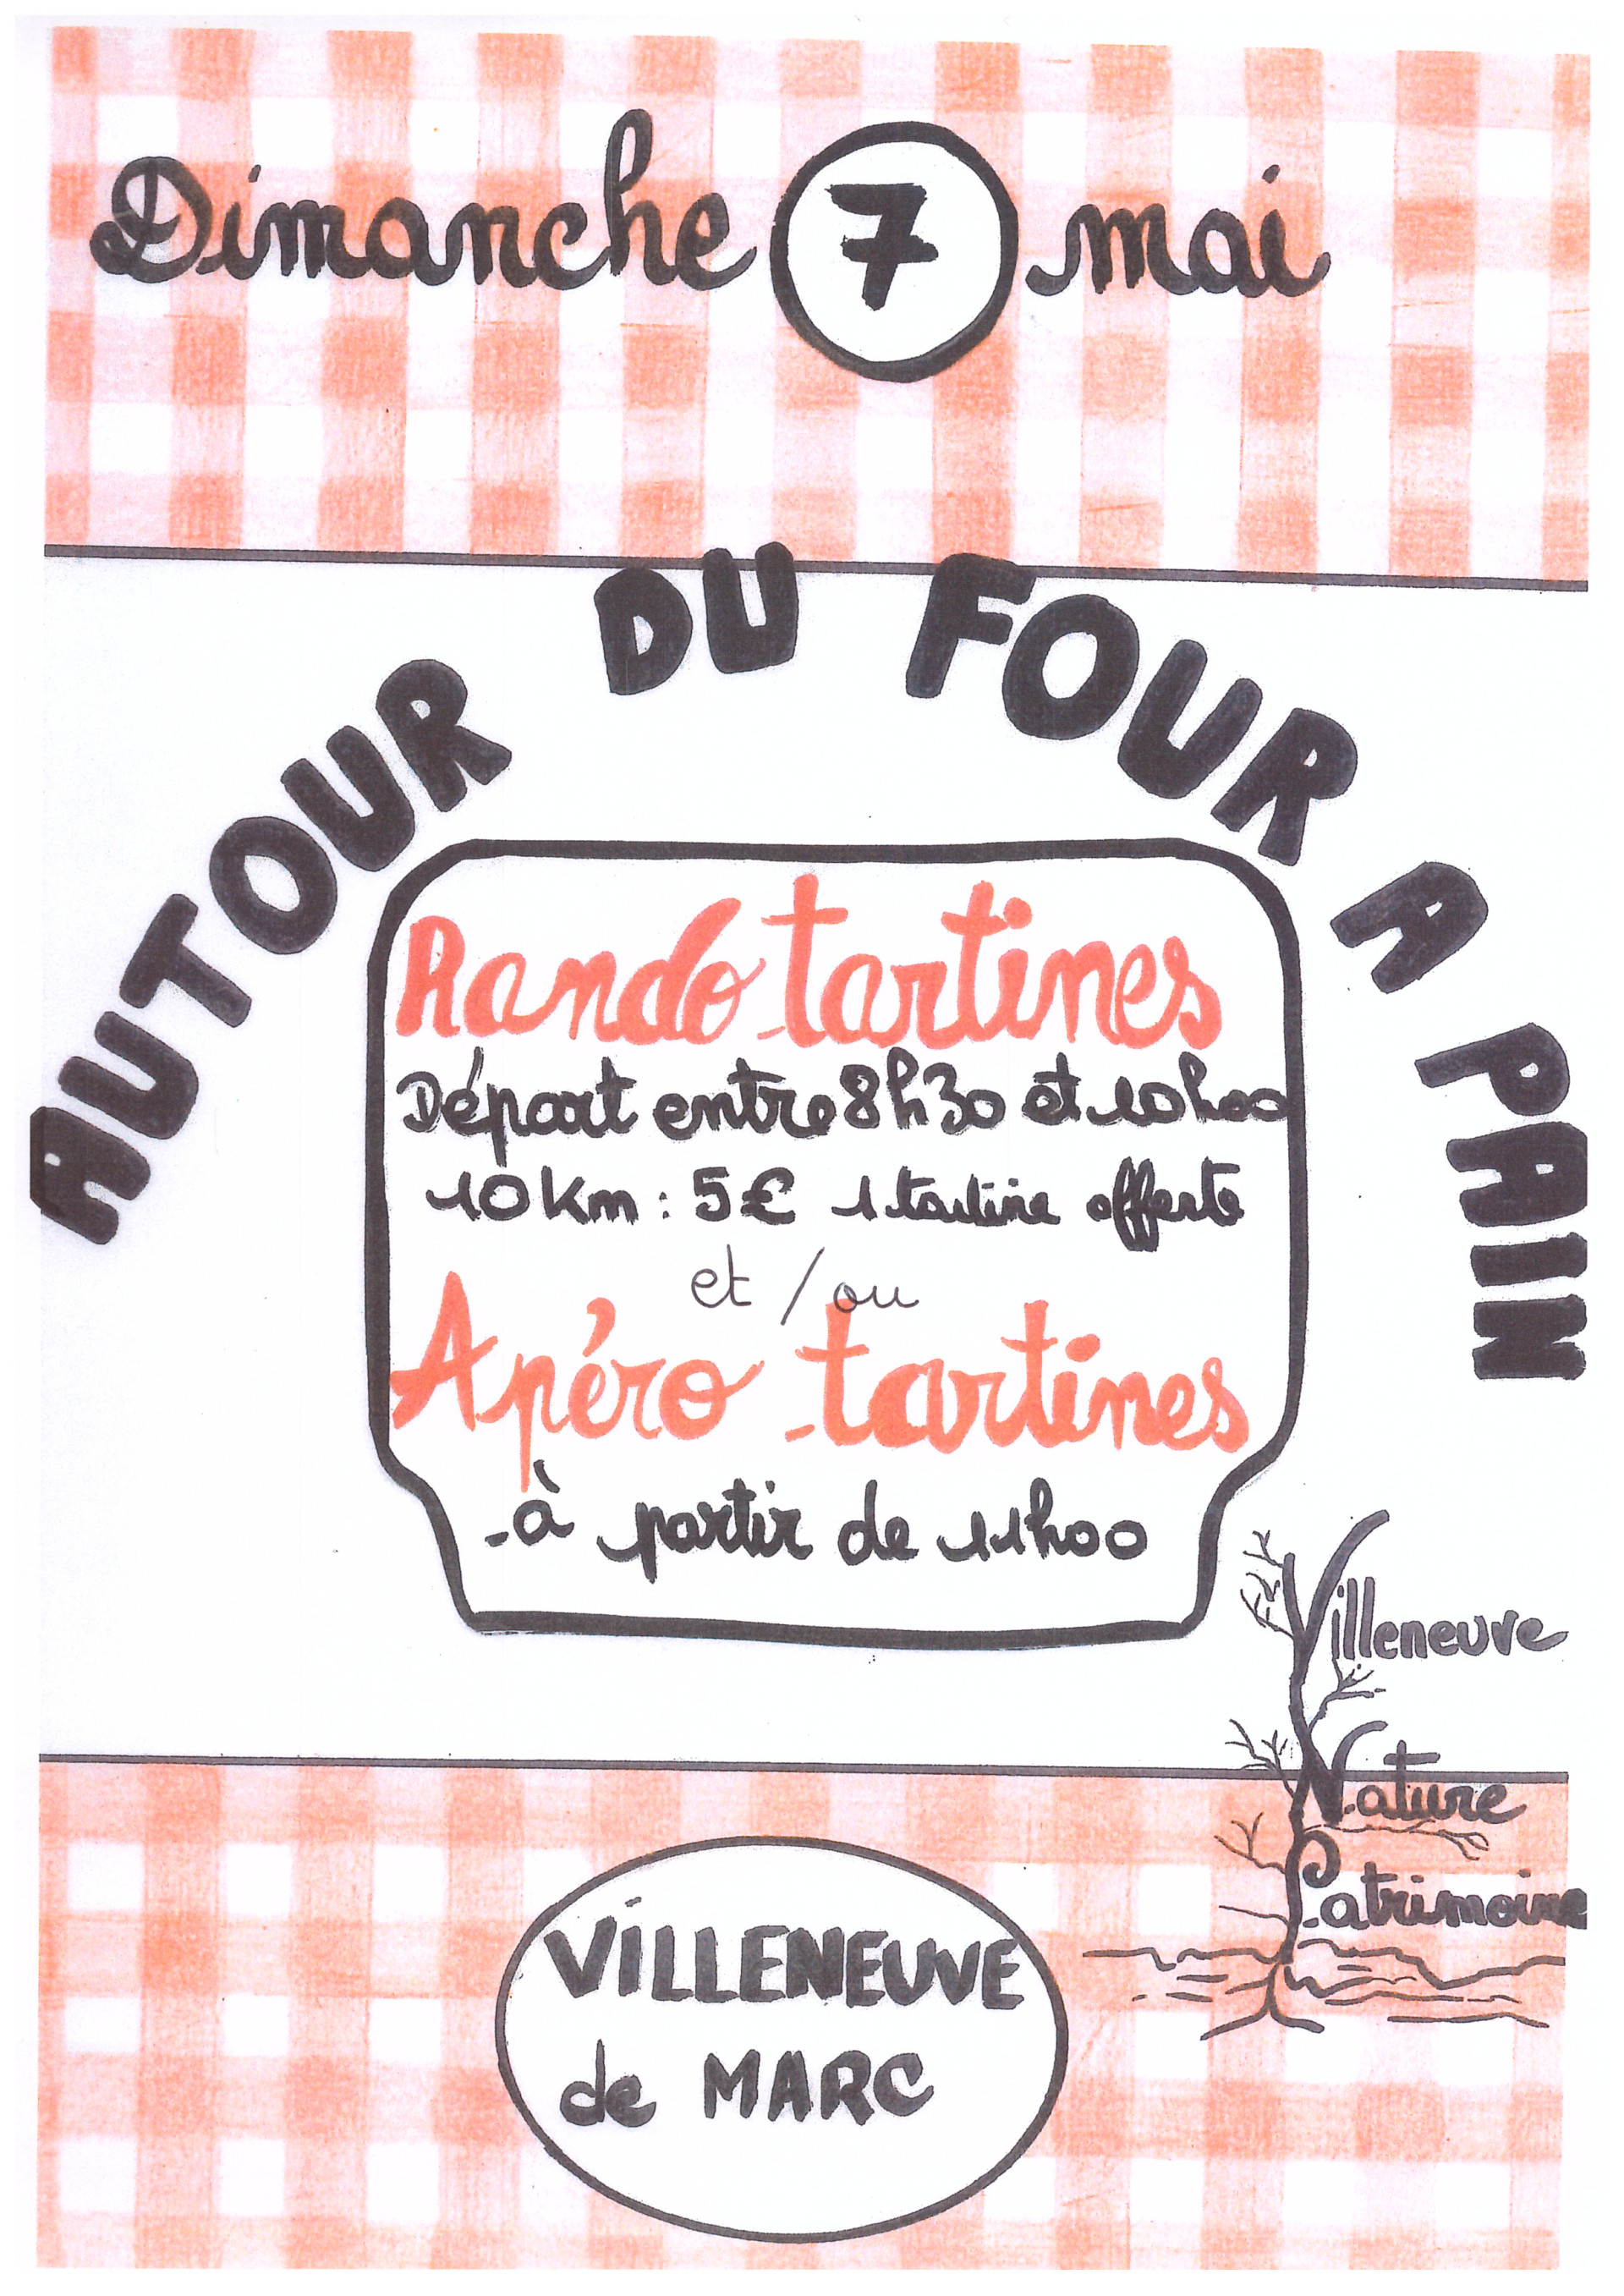 Dimanche 7 mai
AUTOUR DU FOUR A PAIN
Rando tartines
Départ entre 8h30 et 10h00
10 Km : 5€ 1 tartine offerte
et / ou
Apéro tartines
à partir de 11h00
Villeneuve
Nature
Patrimoine
VILLENEUVE
de MARC